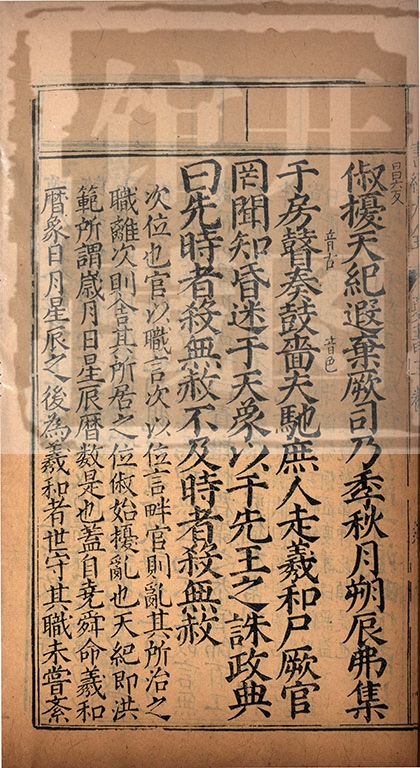 昌六反
俶擾天紀遐棄厥司乃季秋月朔辰弗集
音古
音色
于房瞽奏鼓嗇夫馳庶人走羲和尸厥官
罔聞知昏迷于天象以干先王之誅政典
曰先時者殺無赦不及時者殺無赦
次位也官以職言次以位言畔官則亂其所治之
職離次則舍其所居之位俶始擾亂也天紀即洪
範所謂歲月日星辰暦數是也蓋自堯舜命羲和
暦象日月星辰之後為羲和者世守其職未嘗紊